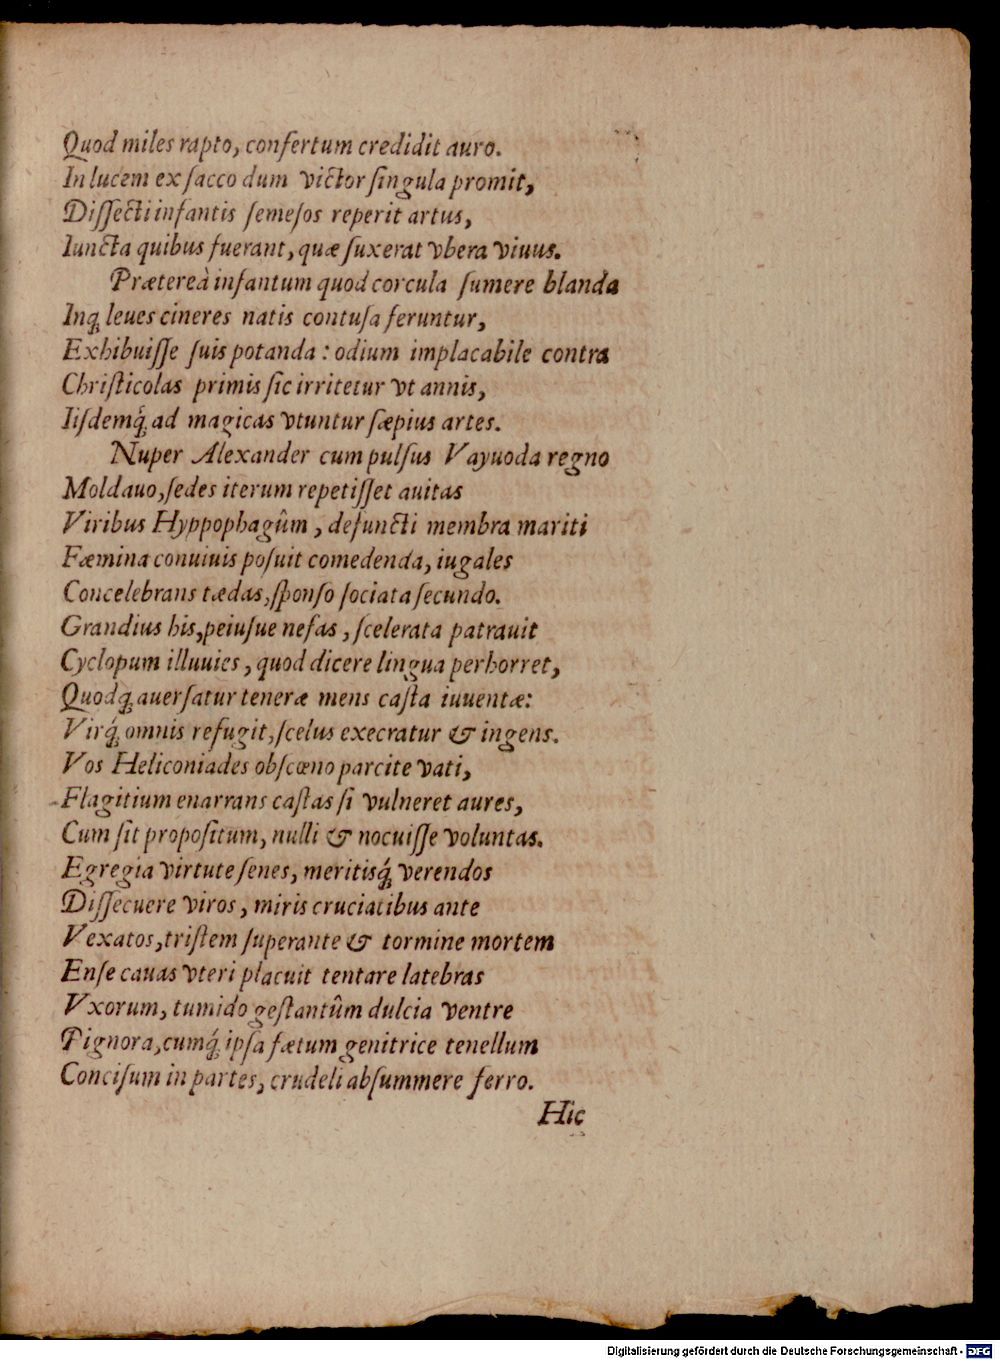 Quod miles rapto, confertum credidit auro.
In lucem ex ſacco dum victor ſingula promit,
Diſſecti infantis ſemeſos reperit artus,
Iuncta quibus fuerant, quæ ſuxerat vbera viuus.
Prætereà infantum quod corcula ſumere blanda
Inq́; leues cineres natis contuſa feruntur,
Exhibuiſſe ſuis potanda: odium implacabile contra
Chriſticolas primis ſic irritetur vt annis,
Iiſdemq́; ad magicas vtuntur ſæpius artes.
Nuper Alexander cum pulſus Vayuoda regno
Moldauo, ſedes iterum repetiſſet auitas
Viribus Hyppophagûm, defuncti membra mariti
Fæmina conuiuis poſuit comedenda, iugales
Concelebrans tædas, ſponſo ſociata ſecundo.
Grandius his, peiuſue nefas, ſcelerata patrauit
Cyclopum illuuies, quod dicere lingua perhorret,
Quodq́; auerſatur teneræ mens caſta iuuentæ:
Virq́; omnis refugit, ſcelus execratur & ingens.
Vos Heliconiades obſcœno parcite vati,
Flagitium enarrans caſtas ſi vulneret aures,
Cum ſit propoſitum, nulli & nocuiſſe voluntas.
Egregia virtute ſenes, meritisq́; verendos
Diſſecuere viros, miris cruciatibus ante
Vexatos, triſtem ſuperante & tormine mortem
Enſe cauas vteri placuit tentare latebras
Vxorum, tumido geſtantûm dulcia ventre
Pignora, cumq́; ipſa fætum genitrice tenellum
Conciſum in partes, crudeli abſummere ferro.
Hic
Digitalisierung gefördert durch die Deutsche Forschungsgemeinschaft - DFG